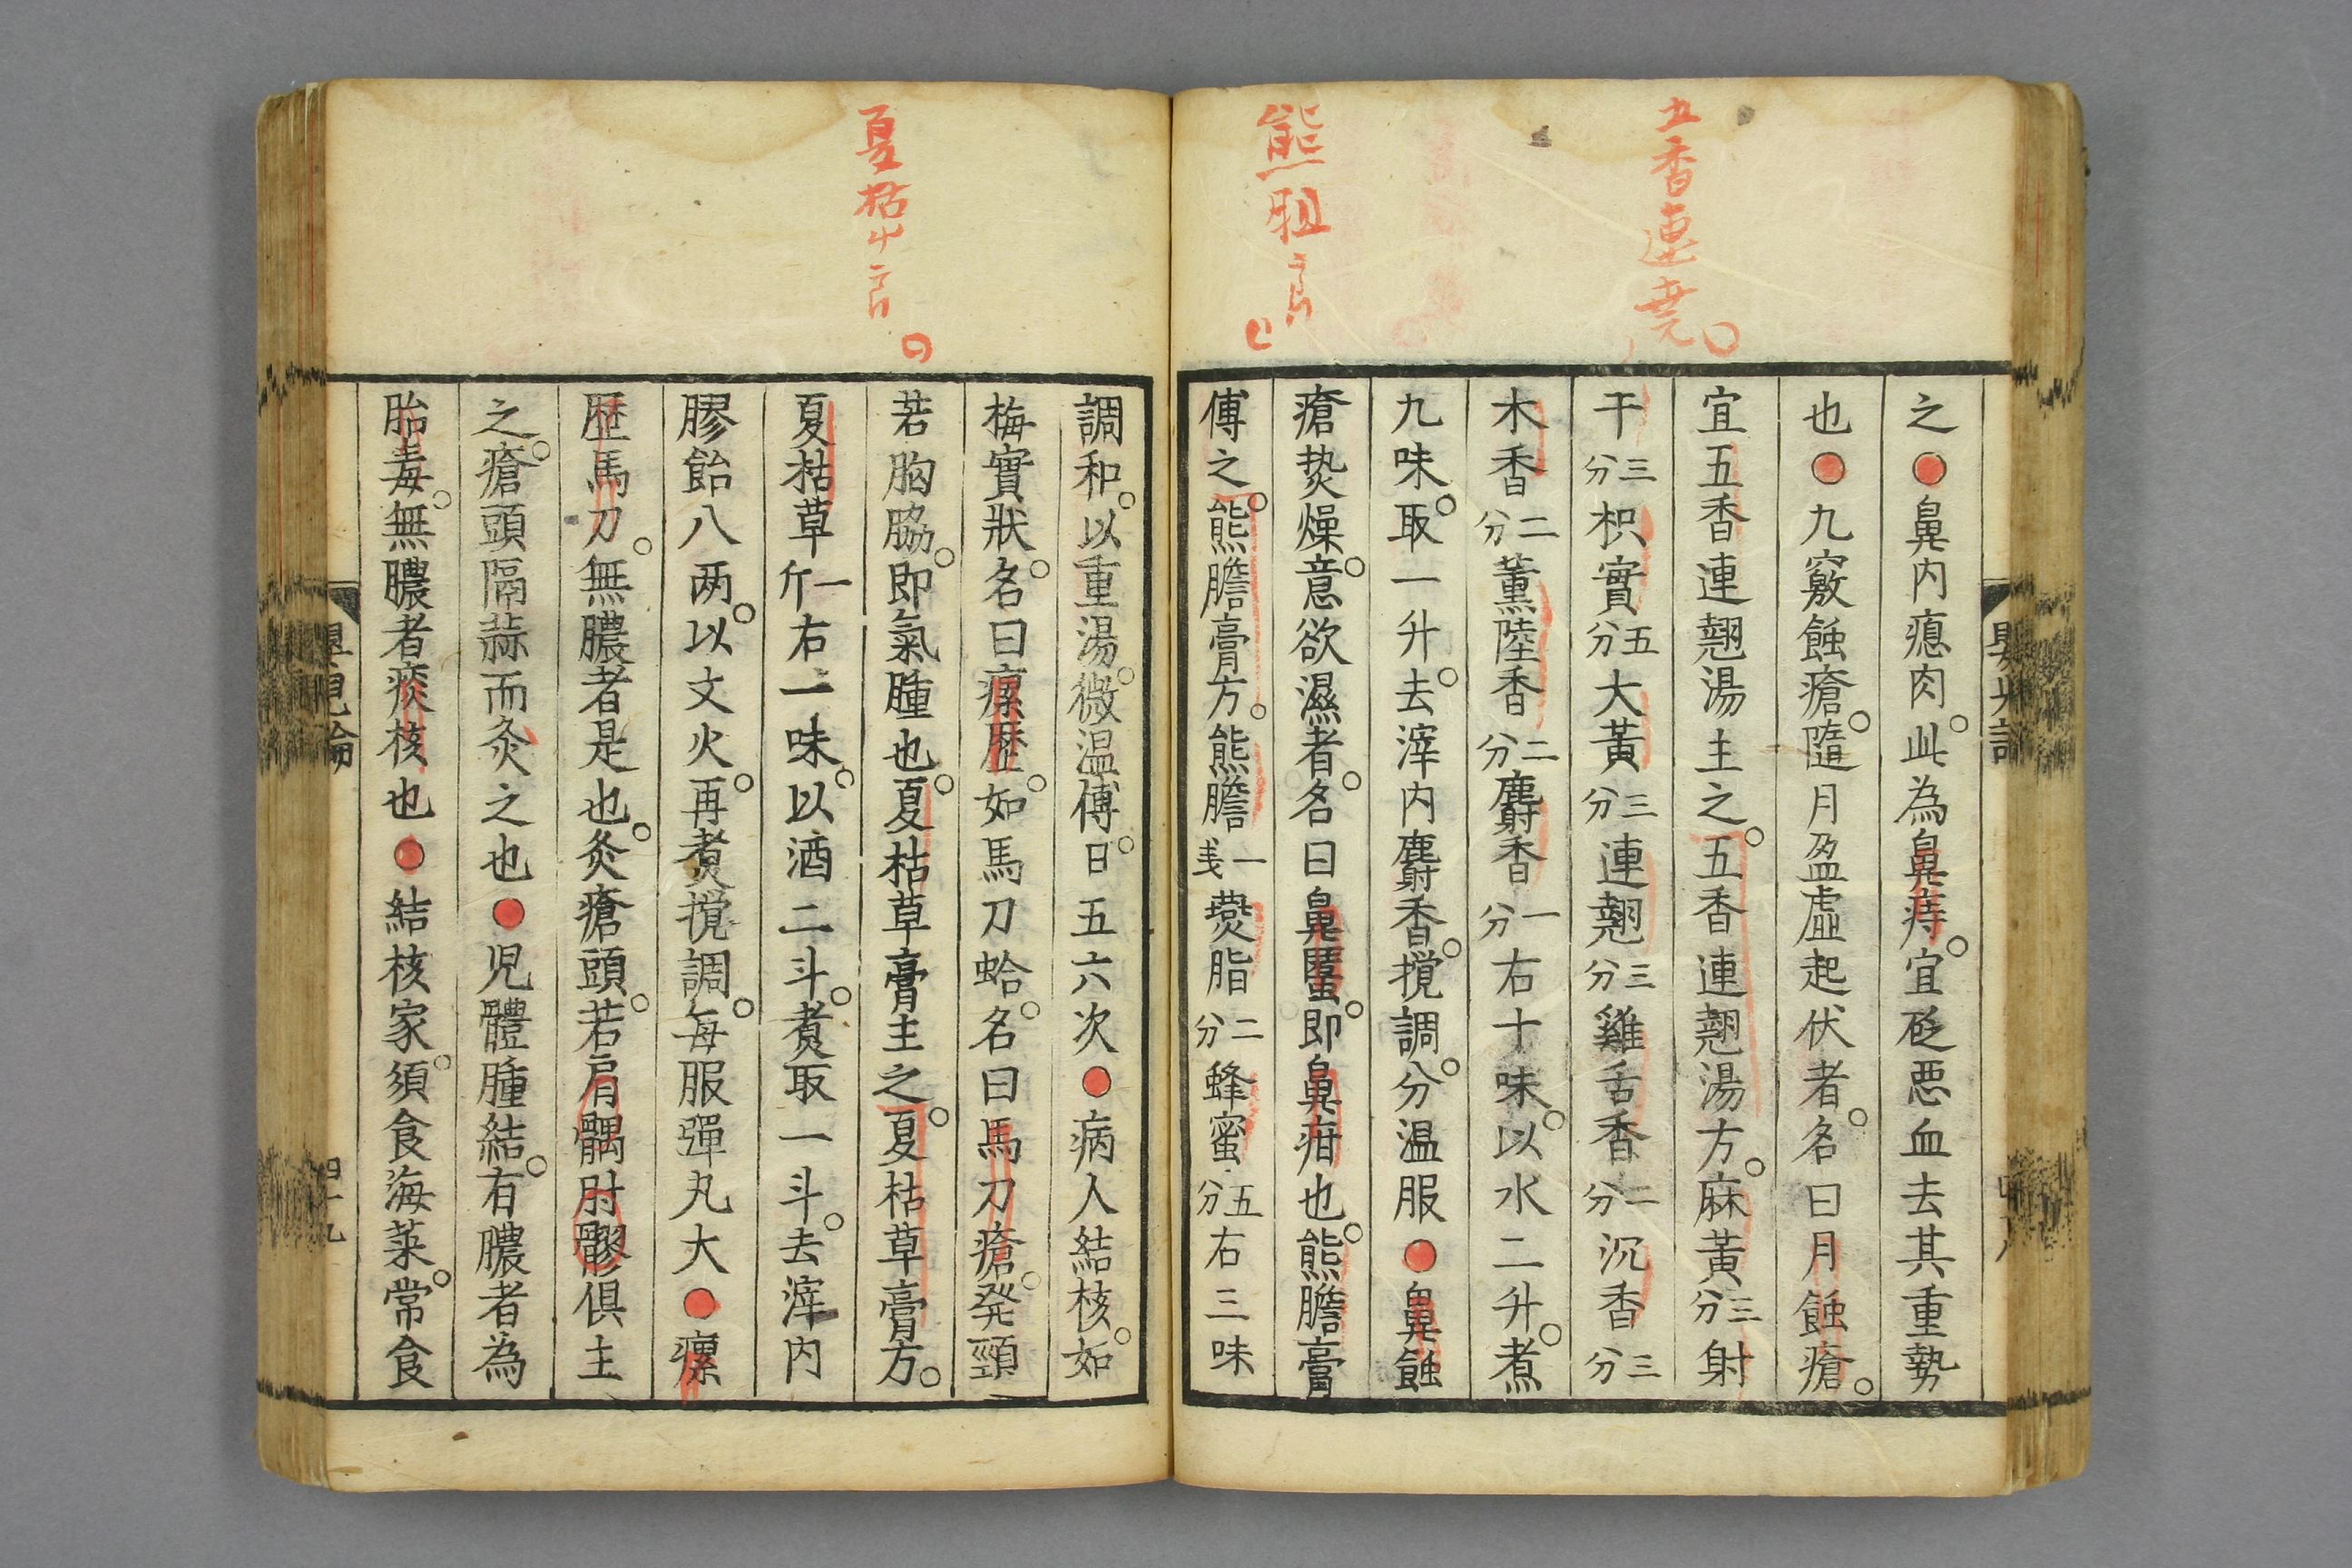 五香連堯
熊胆
之●鼻内瘜肉此為鼻痔宜砭悪血去其重勢
也●九竅蝕瘡隨月盈虛起伏者名曰月蝕瘡
宜五香連翹湯主之五香連翹湯方麻黃三分射
干三分枳實五分大黃三分連翹三分雞舌香二分沉香三分
木香二分薰陸香二分麝香一分右十味以水二升煮
九味取一升去滓内麝香攪調分温服●鼻蝕
瘡熱燥意欲濕者名曰鼻䘌即鼻疳也熊膽膏
傅之熊膽膏方熊膽一戔燕脂二分蜂蜜五分右三味
夏枯
調和以重湯微温傅日五六次●病人結核如
梅實狀名曰瘰歴如馬刀蛤名曰馬刀瘡発頸
若胸脇即氣腫也夏枯草膏主之夏枯草膏方
夏枯草一斤右一味以酒二斗煮取一斗去滓内
膠飴八两以文火再煮攪調每服彈丸大●瘰
歴馬刀無膿者是也灸瘡頭若肩髃肘髎俱主
之瘡頭隔蒜而灸之也●児體腫結有膿者為
胎毒無膿者痰核也●結核家須食海菜常食
四十九